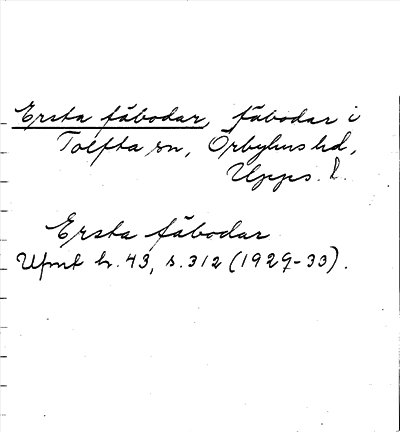 Ersta fäbodar, fäbodar i
Tolfta sn, Örbyhus hd,
Upps. l.
Ersta fäbodar
Ufmt h. 43, s. 312 (1929-33).